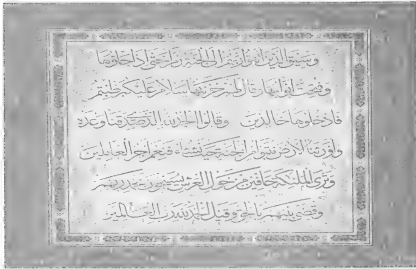 وسيق الذين اتقوا ربهم الى الجنة زمرا حتى اذا جاؤها
وفتحت ابوابها وقال لهم خزنتها سلام عليكم طبتم
فادخلوها خالدين وقالوا الحمد لله الذي صدقنا وعده
واورثنا الارض نتبوأ من الجنة حيث نشاء فنعم اجر العاملين
وترى الملئكة حافين من حول العرش يسبحون بحمد ربهم
وقضي بينهم بالحق وقيل الحمد لله رب العالمين